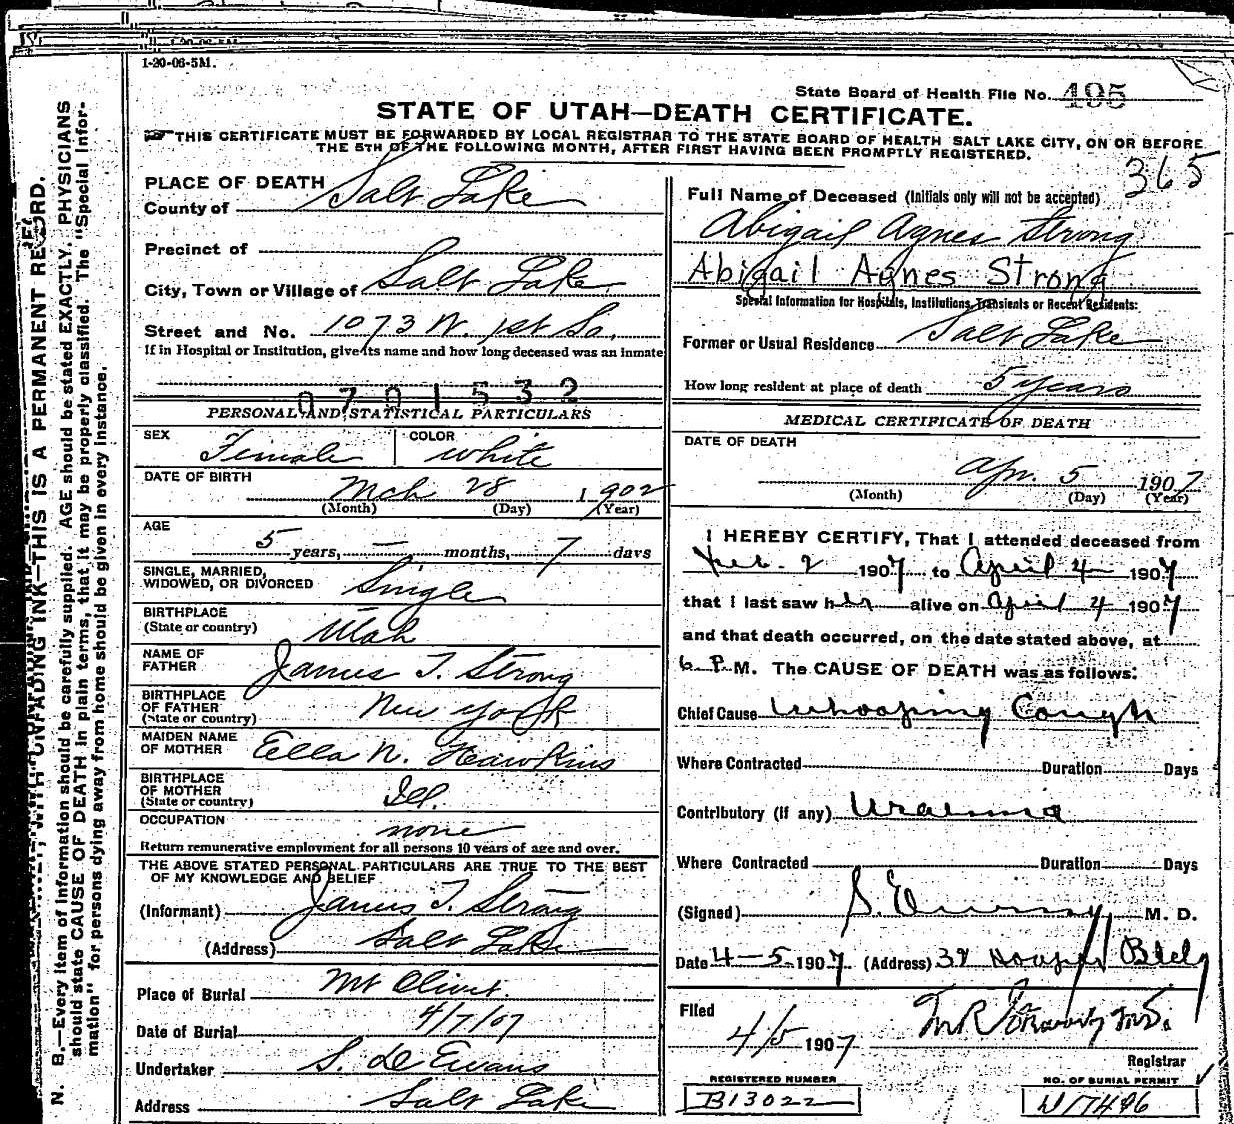 1-20-06-5M.
State Board of Health File No. 495
STATE OF UTAH—DEATH CERTIFICATE.
THIS CERTIFICATE MUST BE FORWARDED BY LOCAL REGISTRAR TO THE STATE BOARD OF HEALTH SALT LAKE CITY, ON OR BEFORE
THE 5TH OF THE FOLLOWING MONTH, AFTER FIRST HAVING BEEN PROMPTLY REGISTERED.
365
PLACE OF DEATH
County of Salt Lake
Precinct of
City, Town or Village of Salt Lake
Street and No. 1073 W. 1st So.
If in Hospital or Institution, give its name and how long deceased was an inmate
0701532
PERSONAL AND STATISTICAL PARTICULARS
SEX Female COLOR White
DATE OF BIRTH Mch 28 1902
(Month) (Day) (Year)
AGE
5 years, — months, 7 days
SINGLE, MARRIED,
WIDOWED, OR DIVORCED Single
BIRTHPLACE
(State or country) Utah
NAME OF
FATHER James T. Strong
BIRTHPLACE
OF FATHER
(State or country) New York
MAIDEN NAME
OF MOTHER Ella N. Hawkins
BIRTHPLACE
OF MOTHER
(State or country) Ill.
OCCUPATION none
Return remunerative employment for all persons 10 years of age and over.
THE ABOVE STATED PERSONAL PARTICULARS ARE TRUE TO THE BEST
OF MY KNOWLEDGE AND BELIEF
(Informant) James T. Strong
(Address) Salt Lake
Place of Burial Mt Olivet.
Date of Burial 4/7/07
Undertaker S. De Evans
Address Salt Lake
Full Name of Deceased (Initials only will not be accepted)
Abigail Agnes Strong
Abigail Agnes Strong
Special Information for Hospitals, Institutions, Transients or Recent Residents:
Former or Usual Residence Salt Lake
How long resident at place of death 5 years
MEDICAL CERTIFICATE OF DEATH
DATE OF DEATH
Apr. 5 1907
(Month) (Day) (Year)
I HEREBY CERTIFY, That I attended deceased from
Feb. 2 1907 to April 4 1907
that I last saw her alive on April 4 1907
and that death occurred, on the date stated above, at
6 P. M. The CAUSE OF DEATH was as follows:
Chief Cause Whooping Cough
Where Contracted Duration Days
Contributory (if any) Uraemia
Where Contracted Duration Days
(Signed) S. M. D.
Date 4-5-1907 (Address) 39 Hooper Bldg
Filed
4/5 1907
Registrar
REGISTERED NUMBER
B13022
NO. OF BURIAL PERMIT
W17496
N. B.—Every item of information should be carefully supplied. AGE should be stated EXACTLY. PHYSICIANS
should state CAUSE OF DEATH in plain terms, that it may be properly classified. The "Special Infor-
mation" for persons dying away from home should be given in every instance.
WITH UNFADING INK—THIS IS A PERMANENT RECORD.